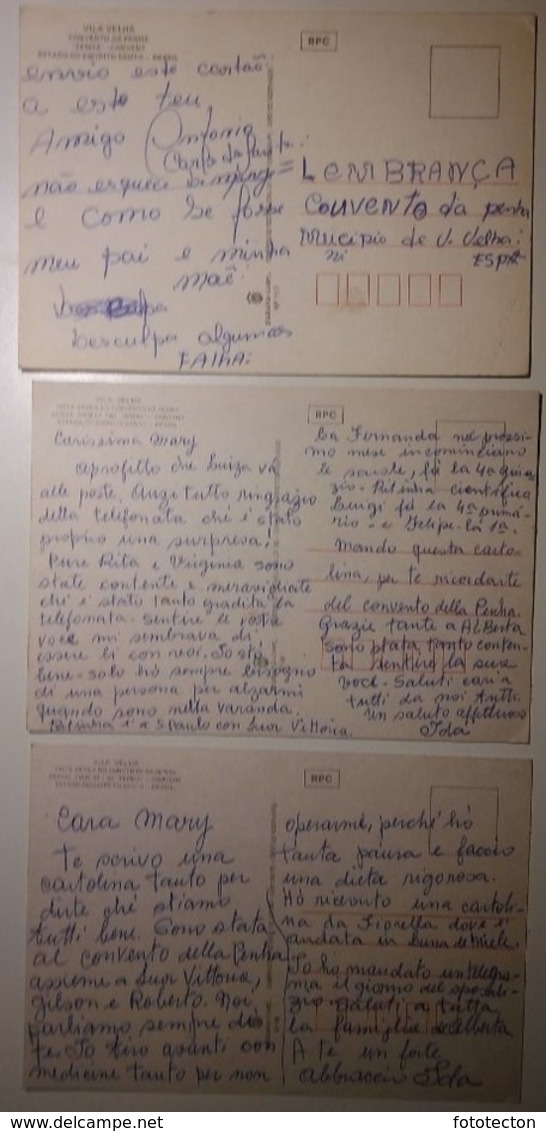 VILA VELHA
CONVENTO DA PENHA
"PENHA" CONVENT
ESTADO DO ESPÍRITO SANTO - BRASIL
BPC
envio este cartaõ
a este teu,
Amigo Antonio
Carlo da
não esqueci
e como se fosse
meu pai e minha
maê:
Desculpa algumas
FAlhA:
LEMBRANÇA
Couvento da penha
Mucipio de V. Velha:
ESPA
VILA VELHA
BPC
Carissima Mary
aprofitto che Luiza va
alle poste. Anzi tutto ringrazio
della telefonata ché é stato
proprio una surpresa!
Pure Rita e Virginia sono
state contente e meravigliate
ché é stato tanto gradita la
telefonata - sentire la vostra
voce mi sembrava di
essere li con voi. Io stó
bene - solo hó sempre bisogno
di una persona per alzarmi
quando sono nella varanda.
é a S Paulo con Suor Vittoria.
La Fernanda nel prossi-
mo mese incominciano
le scuole, fá la 4a
zio - Ritinha cientifica
Luigi fá la 4ª primá-
rio - e Felipe - la 1ª.
Mando questa carto-
lina, per te ricordarte
del convento della Penha.
Grazie tante a Alberta
sono stata tanto conten-
ta sentire la sua
voce - Saluti cari a
tutti da noi tutti.
Un saluto affettuoso
Ida
VILA VELHA
BPC
Cara Mary
Te scrivo una
cartolina tanto per
dirte ché stiamo
tutti bene. Sono stata
al convento della Penha
assieme a Suor Vittoria,
Gilson e Roberto. Noi
parliamo sempre di
te. Io tiro avanti con
medicine tanto per non
operarmé, perché hó
tanta paura e faccio
una dieta rigorosa.
Hó ricevuto una cartoli-
na da Fiorella dove é
andata in Luna de Miele.
Io ho mandato un telegra-
ma il giorno del sposali-
zio - Saluti a tutta
la famiglia de Alberta
A te un forte
abbraccio Ida